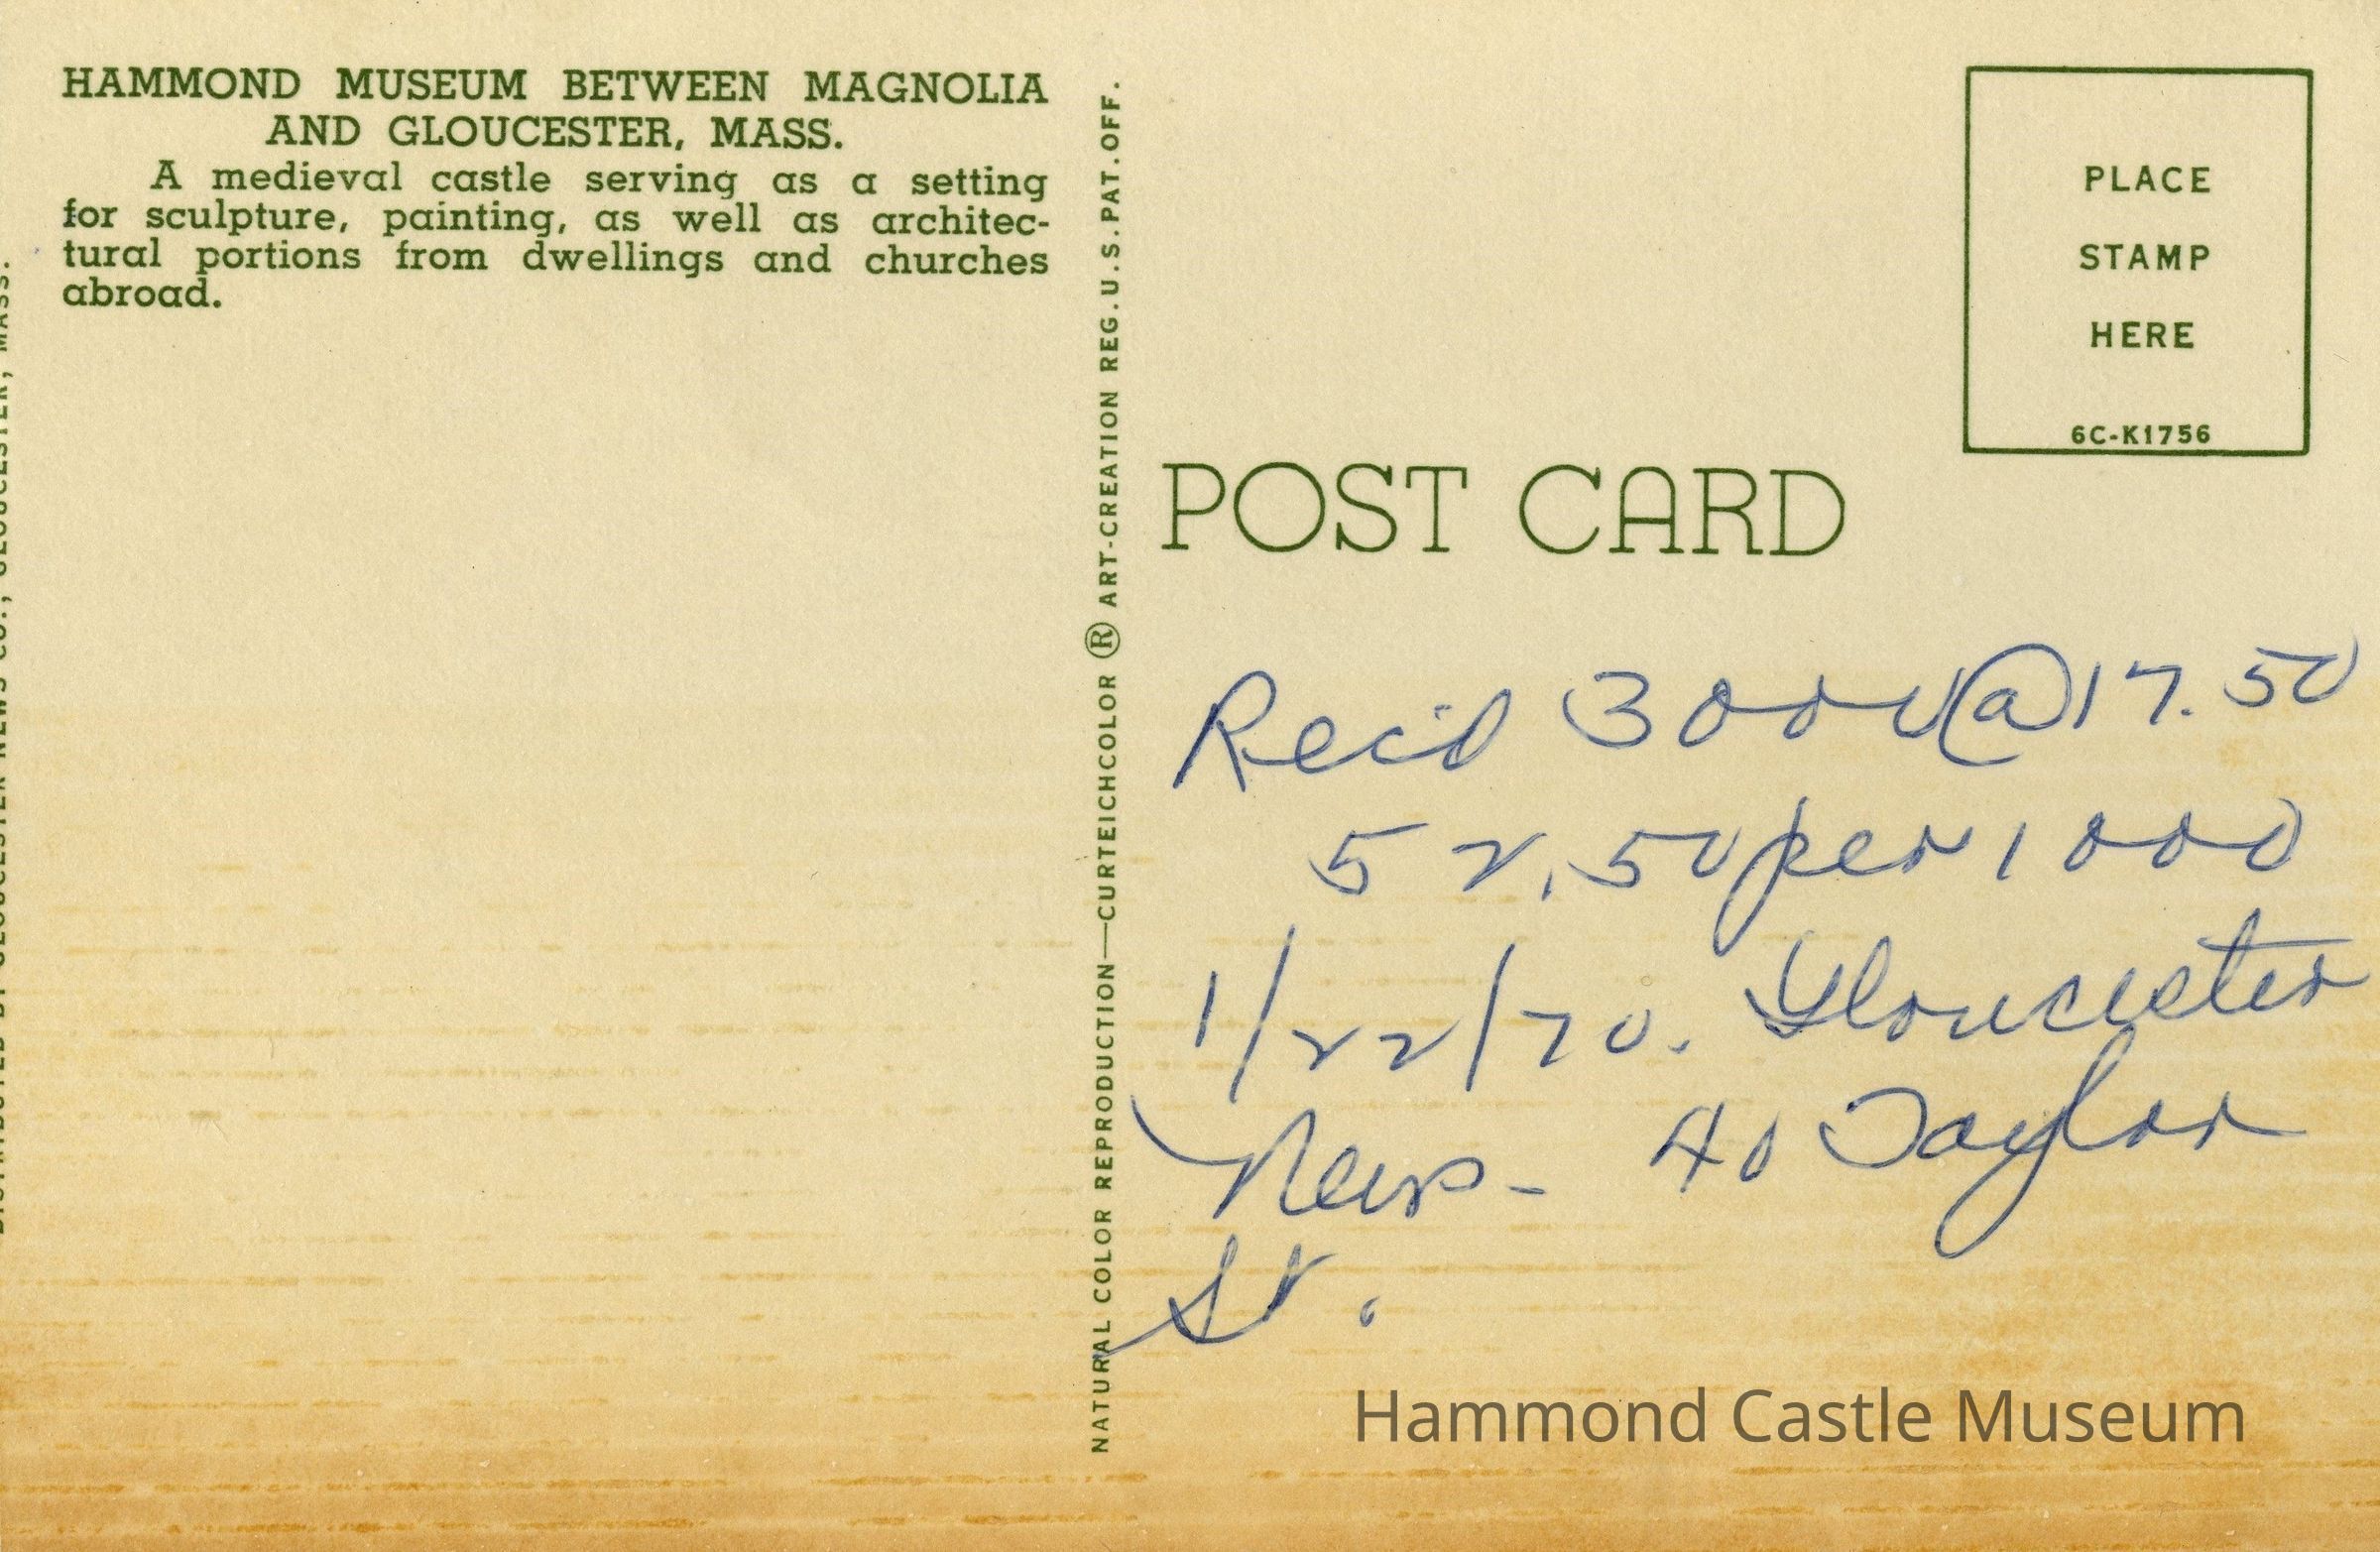 HAMMOND MUSEUM BETWEEN MAGNOLIA
AND GLOUCESTER, MASS.
A medieval castle serving as a setting
for sculpture, painting, as well as architec-
tural portions from dwellings and churches
abroad.
DISTRIBUTED BY GLOUCESTER NEWS CO., GLOUCESTER, MASS.
NATURAL COLOR REPRODUCTION—CURTEICHCOLOR ® ART-CREATION REG.U.S.PAT.OFF.
PLACE
STAMP
HERE
6C-K1756
POST CARD
Rec'd 3000 @ 17.50
52.50 per 1000
1/22/70. Gloucester
News - 40 Taylor
St.
Hammond Castle Museum